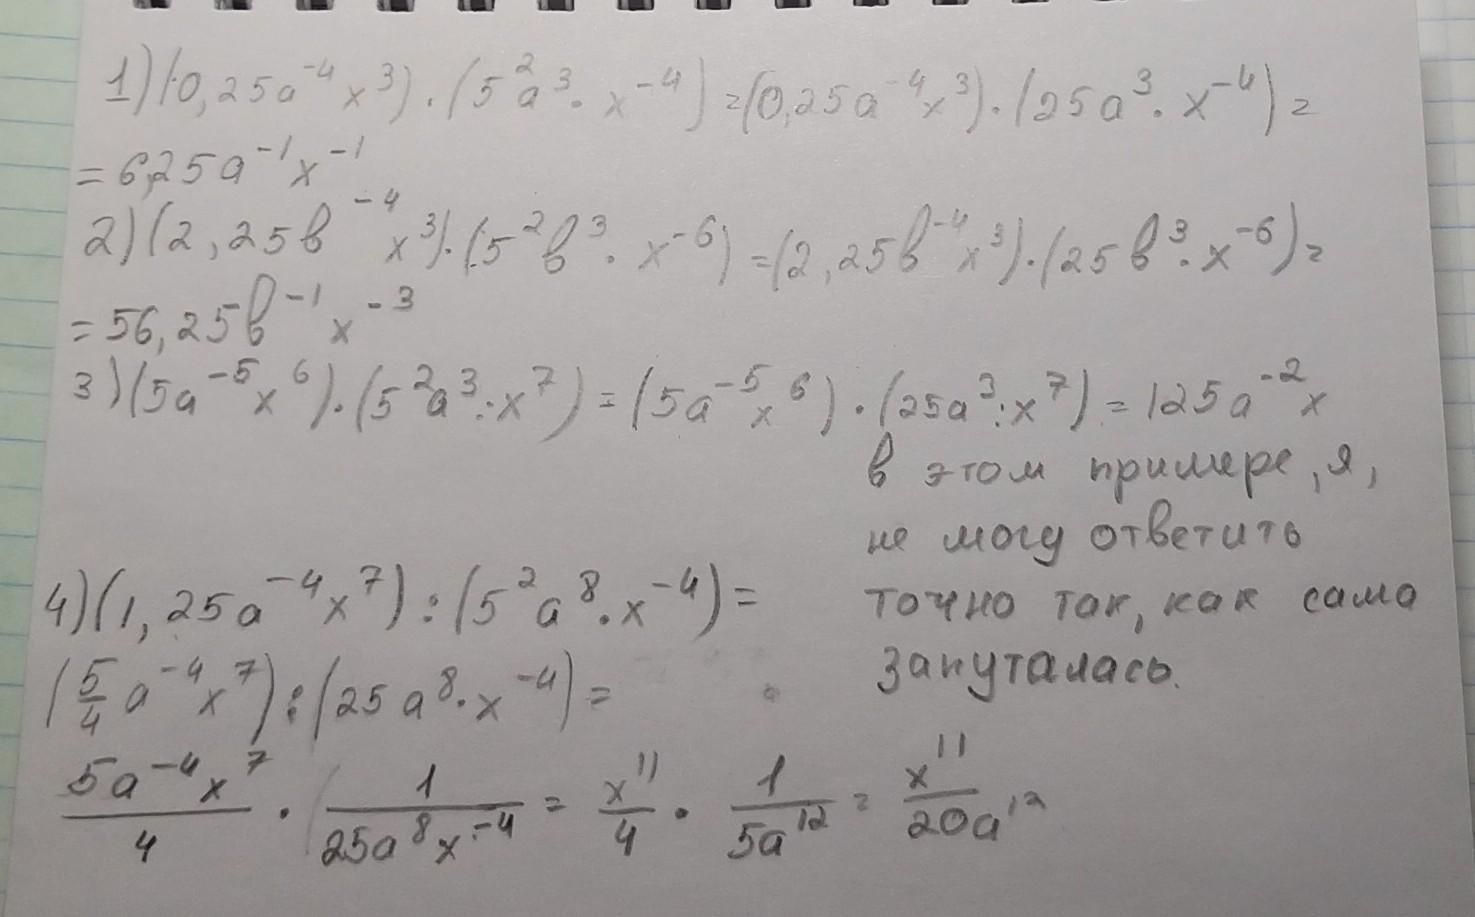 1) (0,25a⁻⁴x³)·(5²a³·x⁻⁴)=(0,25a⁻⁴x³)·(25a³·x⁻⁴)=
=6,25a⁻¹x⁻¹
2) (2,25в⁻⁴x³)·(5²в³·x⁻⁶)=(2,25в⁻⁴x³)·(25в³·x⁻⁶)=
=56,25в⁻¹x⁻³
3) (5a⁻⁵x⁶)·(5²a³:x⁷)=(5a⁻⁵x⁶)·(25a³:x⁷)=125a⁻²x
в этом примере, я,
не могу ответить
точно так, как сама
запуталась.
4) (1,25a⁻⁴x⁷):(5²a⁸·x⁻⁴)=
(5/4 a⁻⁴x⁷):(25a⁸·x⁻⁴)=
5a⁻⁴x⁷/4 · 1/25a⁸x⁻⁴ = x¹¹/4 · 1/5a¹² = x¹¹/20a¹²